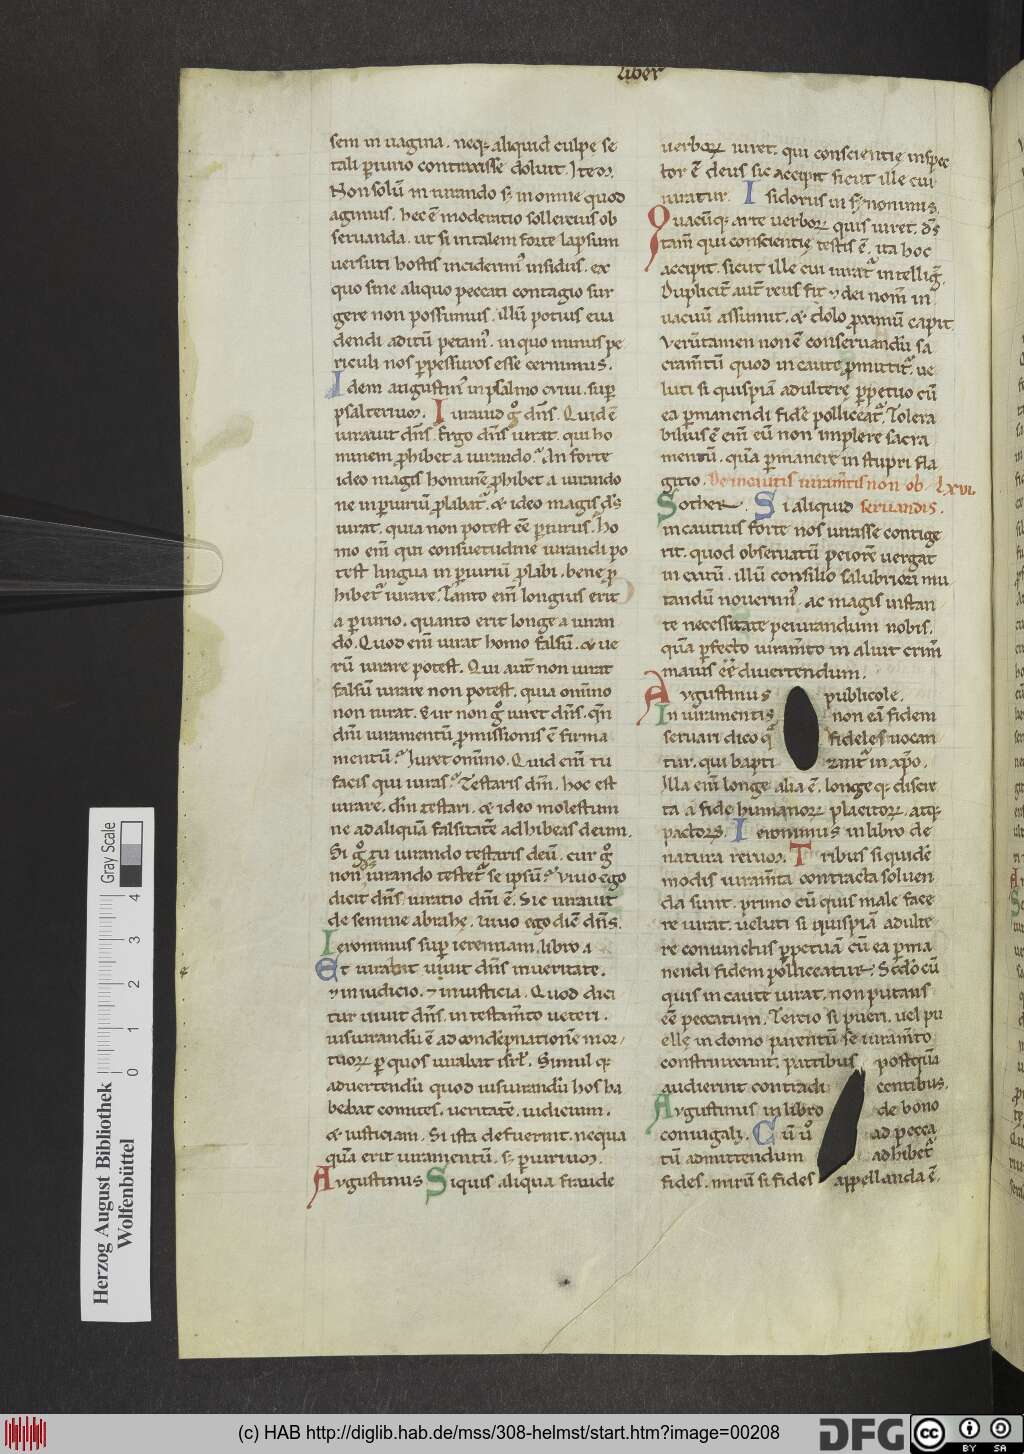 liber
sem in uagina. neq; aliquid culpę se
tali p̄iurio contraxisse doluit. Item.
Non solū in iurando sꝫ in omne quod
agimus. hec ē moderatio sollertius ob
seruanda. ut si in talem forte lapsum
uersuti hostis inciderim᷒ insidiis. ex
quo sine aliquo peccati contagio sur
gere non possumus. illū potius eua
dendi aditū petam᷒. in quo minus pe
riculi nos ꝑpessuros esse cernimus.
Idem augustin᷒ in psalmo cviiii. sup̄
psalterium. Iurauid gͦ dn̄s. Quid ē
iurauit dn̄s. Ergo dn̄s iurat. qui ho
minem ꝓhibet a iurando? An forte
ideo magis hominē ꝓhibet a iurando
ne in ꝑiuriū ꝓlabat᷑. & ideo magis d̄s
iurat. quia non potest eē ꝑiurus. Ho
mo em̄ qui consuetudine iurandi po
test lingua in ꝑiuriū ꝓlabi. bene ꝓ
hibet᷑ iurare. Tanto em̄ longius erit
a ꝑiurio. quanto erit longe a iuran
do. Quod em̄ iurat homo falsū. & ue
rū iurare potest. Qui aut̄ non iurat
falsū iurare non potest. quia om̄ino
non iurat. Cur non gͦ iuret dn̄s. qn̄
dn̄i iuramentū ꝓmissionis ē firma
mentū? Iuret om̄ino. Quid em̄ tu
facis qui iuras? Testaris dm̄. hoc est
iurare. dm̄ testari. & ideo molestum
ne ad aliquā falsitatē adhibeas deum.
Si gͦ tu iurando testaris deū. cur gͦ
non iurando testet᷑ se ipsū? Viuo ego
dicit dn̄s. iuratio dn̄i ē. Sic iurauit
de semine abrahę. uiuo ego diē dn̄s.
Ieronimus sup̄ ieremiam. libro a
Et iurabit uiuit dn̄s in ueritate.
⁊ in iudicio. ⁊ in iusticia. Quod dici
tur uiuit dn̄s. in testam̄to ueteri.
iusiurandū ē ad condēpnationē mor
tuoꝝ ꝑ quos iurabat isrł. Simul q;
aduertendū quod iusiurandū hos ha
beat comites. ueritatē. iudicium.
& iusticiam. Si ista defuerint. nequa
quā erit iuramentū. sꝫ ꝑiurium.
Augustinus Siquis aliqua fraude
uerboꝝ iuret. qui conscientię inspec
tor ē deus sic accipit sicut ille cui
iuratur. Isidorus in synonimis.
Quacūq; arte uerboꝝ quis iuret. d̄s
tam̄ qui conscientię testis ē. ita hoc
accipit. sicut ille cui iurat᷑ intelligit̄.
Duplicit̄ aut̄ reus fit ⁊ dei nom̄ in
uacuū assumit. & dolo ꝓximū capit.
Verūtamen non ē conseruandū sa
cram̄tū quod incaute ꝓmittit᷑. ue
luti si quispiā adulterę ꝑpetuo cū
ea ꝑmanendi fidē polliceat᷑. Tolera
bilius ē em̄ eū non implere sacra
mentū. quā ꝑmaneret in stupri fla
gitio. De incautis iuram̄tis non ob Lxvi.
Sother. Si aliquid seruandis.
incautius forte nos iurasse contige
rit. quod obseruatū peiorē uergat
in exitū. illū consilio salubriori mu
tandū nouerim᷒. ac magis instan
te necessitate peiurandum nobis.
quā ꝑfecto iuram̄to in aliut crim̄
maius eē diuertendum.
Augustinus publicole.
In iuramentis non eā fidem
seruari dico q̄ fideles uocan
tur. qui bapti zant᷑ in xp̄o.
Illa em̄ longe alia ē. longe q; discre
ta a fide humanoꝝ placitoꝝ. atq;
pactoꝝ. Ieronimus in libro de
natura rerum. Tribus si quidē
modis iuram̄ta contracta soluen
da sunt. primo cū quis male face
re iurat. ueluti si quispiā adulte
re coniunctus ꝑpetuā cū ea ꝑma
nendi fidem polliceatur. Scd̄o cū
quis incaute iurat. non putans
eē peccatum. Tertio si pueri. uel pu
ellę in domo parentū se iuram̄to
construxerint. patribus postquā
audierint contradi centibus.
Augustinus in libro de bono
coniugali. Cū uͦ ad pecca
tū admittendum adhibet᷑
fides. mirū si fides appellanda ē.
Gray Scale
0 1 2 3 4
Herzog August Bibliothek
Wolfenbüttel
(c) HAB http://diglib.hab.de/mss/308-helmst/start.htm?image=00208
DFG
cc
BY SA